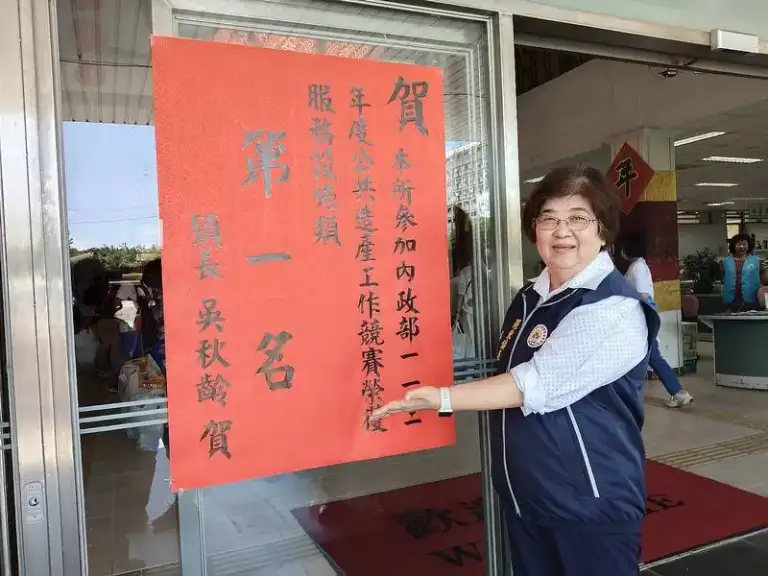 賀
本所參加內政部一一二
年度公共造產工作競賽榮獲
服務設施類
第一名
鎮長 吳秋齡 賀
年
歡
W
E